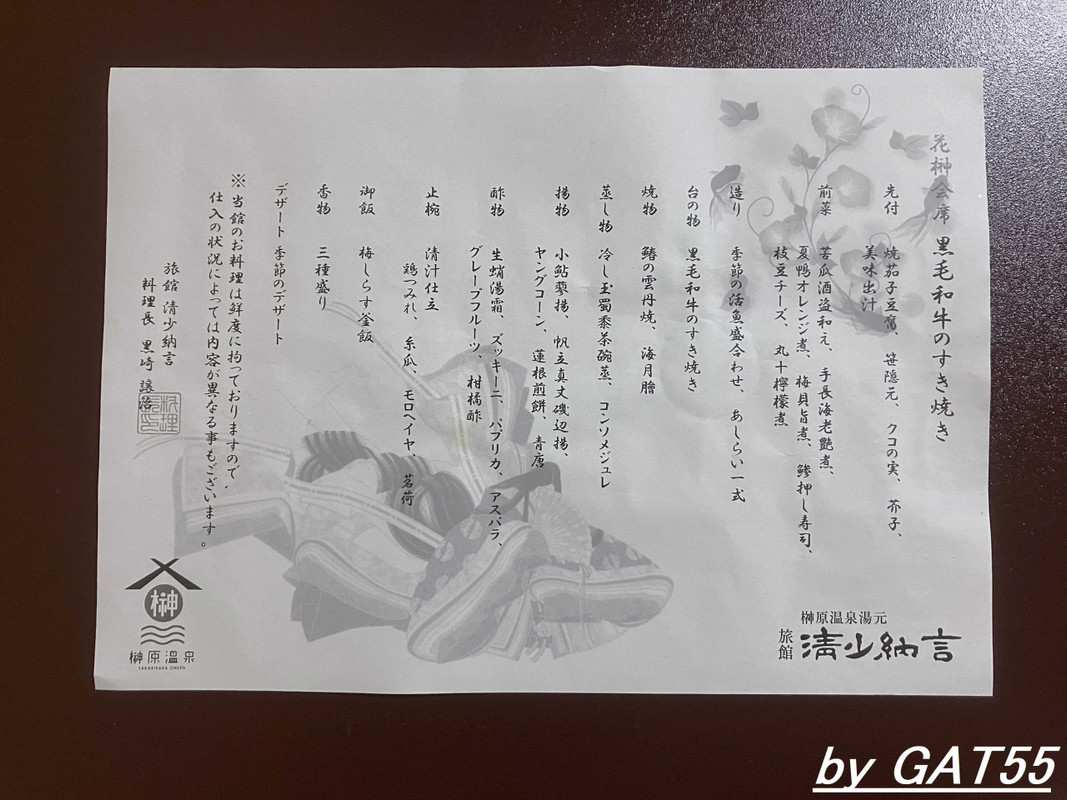 花榊会席 黒毛和牛のすき焼き
先付 焼茄子豆腐、笹隠元、クコの実、芥子、
美味出汁
前菜 苦瓜酒盗和え、手長海老艶煮、
夏鴨オレンジ煮、梅貝旨煮、鯵押し寿司、
枝豆チーズ、丸十檸檬煮
造り 季節の活魚盛合わせ、あしらい一式
台の物 黒毛和牛のすき焼き
焼物 鱚の雲丹焼、海月膾
蒸し物 冷し玉蜀黍茶碗蒸、コンソメジュレ
揚物 小鮎蓼揚、帆立真丈磯辺揚、
ヤングコーン、蓮根煎餅、青唐
酢物 生蛸湯霜、ズッキーニ、パプリカ、アスパラ、
グレープフルーツ、柑橘酢
止椀 清汁仕立
鶏つみれ、糸瓜、モロヘイヤ、茗荷
御飯 梅しらす釜飯
香物 三種盛り
デザート 季節のデザート
※ 当館のお料理は鮮度に拘っておりますので、
仕入の状況によっては内容が異なる事もございます。
旅館 清少納言
料理長 黒崎 譲治
榊原温泉湯元
旅館 清少納言
榊
榊原温泉
SAKAKIBARA ONSEN
by GAT55